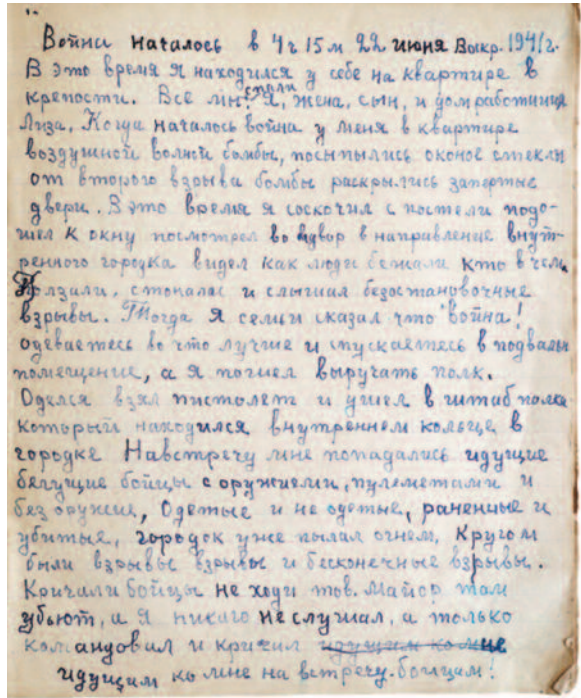 Война началось в 4ч 15м 22 июня Воскр. 1941г.
В это время я находился у себе на квартире в
крепости. Все мы спали я, жена, сын, и домработница
Лиза. Когда началось война у меня в квартире
воздушной волной бомбы, посыпылись оконое стеклы
от второго взрыва бомбы раскрылись запертые
двери. В это время я соскочил с постели подо-
шел к окну посмотрел во двор в направление внут-
ренного городка видел как люди бежали кто в чем
Ползали, стонали и слышал безостановочные
взрывы. Тогда я семьи сказал что война!
одеваетесь во что лучше и спускаетесь в подвальн
помещение, а я пошел выручать полк.
Оделся взял пистолет и ушел в штаб полка
который находился внутреннем кольце в
городке Навстречу мне попадались идущие
бегущие бойцы с оружиеми, пулеметами и
без оружие, Одетые и не одетые, раненные и
убитые, городок уже пылал огнем, Кругом
были взрывы взрывы и бесконечные взрывы.
Кричали бойцы не ходи тов. Майор там
убьют, а я никаго не слушал, а только
командовал и кричил идущим ко мне
идущим ко мне на встречу. бойцам!